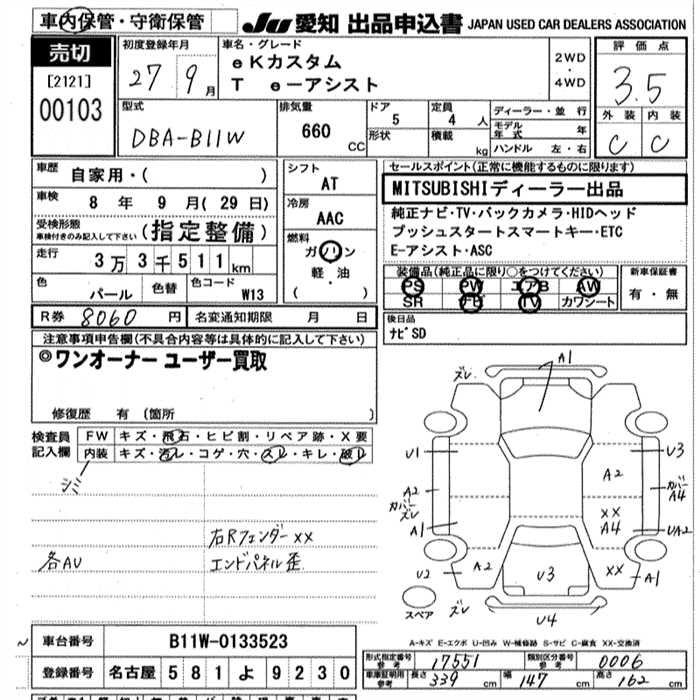 車内保管・守衛保管
JU 愛知 出品申込書 JAPAN USED CAR DEALERS ASSOCIATION
売切
[2121]
00103
初度登録年月
27年 9月
車名・グレード
eKカスタム
T e-アシスト
2WD
・
4WD
評価点
3.5
外装 内装
C C
型式
DBA-B11W
排気量
660 CC
ドア 5
形状
定員 4 人
積載 kg
ディーラー・並行
モデル年式 年
ハンドル 左・右
車歴
自家用・( )
車検
8年 9月(29日)
受検形態
車検付きのみ記入して下さい
(指定整備)
走行
3万3千511km
色
パール
色替
色コード
W13
シフト
AT
冷房
AAC
燃料
ガソリン
軽・油
( )
セールスポイント(正常に機能するものに限ります)
MITSUBISHIディーラー出品
純正ナビ・TV・バックカメラ・HIDヘッド
プッシュスタートスマートキー・ETC
E-アシスト・ASC
装備品(純正品に限り○をつけてください)
PS PW エアB AW
SR TV カワシート
新車保証書
有・無
R券 8060 円
名変通知期限 月 日
後日品
ナビSD
注意事項申告欄(不具合内容等は具体的に記入して下さい)
◎ワンオーナー ユーザー買取
修復歴 有 (箇所 )
検査員
記入欄
FW キズ・飛石・ヒビ割・リペア跡・X要
内装 キズ・汚レ・コゲ・穴・スレ・キレ・破レ
シミ
各AU
右Rフェンダーxx
エンドパネル歪
ズレ A1
U1 U3
A2 A2 カバー A4
カバー ズレ
A1 xx A4 UA2
U2 A2 U3 xx A1
スペア ズレ U4
A-キズ E-エクボ U-凹み W-補修跡 S-サビ C-腐食 XX-交換済
車台番号 B11W-0133523
登録番号 名古屋 581 よ 9230
形式指定番号 参考 17551
類別区分番号 参考 0006
車庫証明用 参考 長さ 339 cm 幅 147 cm 高さ 162 cm